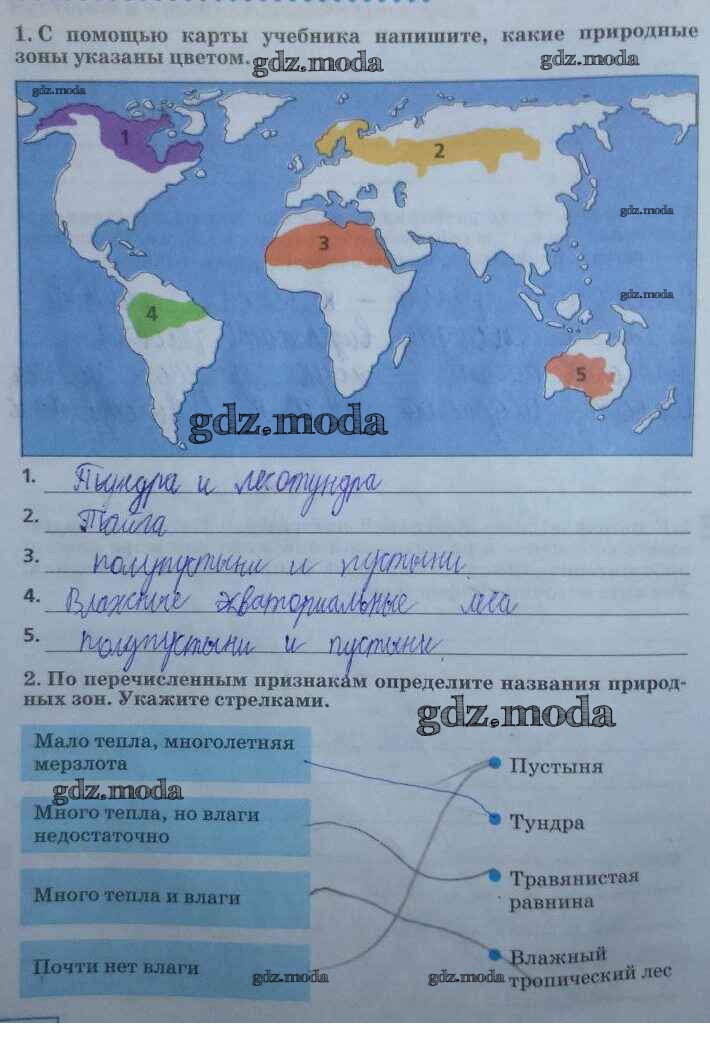 1. С помощью карты учебника напишите, какие природные
зоны указаны цветом.
gdz.moda
gdz.moda
gdz.moda
1
2
gdz.moda
3
gdz.moda
4
5
gdz.moda
1. Тундра и лесотундра
2. Тайга
3. полупустыни и пустыни
4. Влажные экваториальные леса
5. полупустыни и пустыни
2. По перечисленным признакам определите названия природ-
ных зон. Укажите стрелками.
gdz.moda
Мало тепла, многолетняя
мерзлота
Пустыня
gdz.moda
Много тепла, но влаги
недостаточно
Тундра
Много тепла и влаги
Травянистая
равнина
Почти нет влаги
Влажный
тропический лес
gdz.moda
gdz.moda